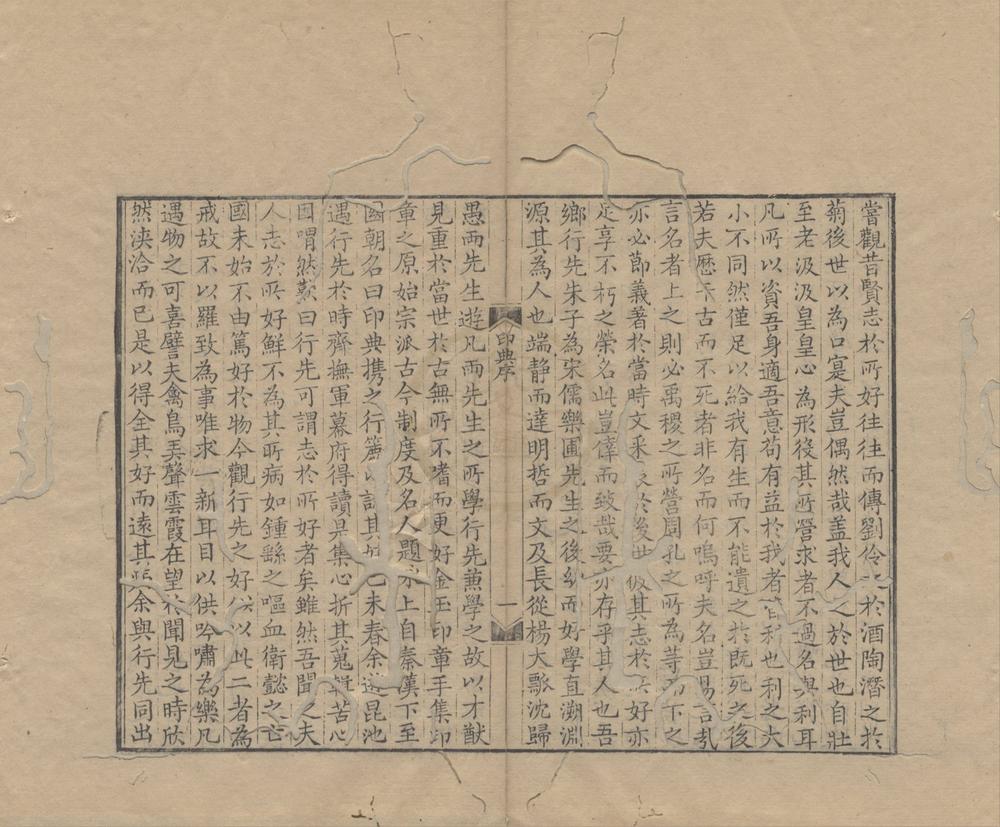 嘗觀昔賢志於所好往往而傳劉伶之於酒陶潛之於
菊後世以為口寔夫豈偶然哉盖我人之於世也自壯
至老汲汲皇皇心為形役其所營求者不過名與利耳
凡所以資吾身適吾意苟有益於我者皆利也利之大
小不同然僅足以給我有生而不能遺之於既死之後
若夫歷千古而不死者非名而何嗚呼夫名豈易言㢤
言名者上之則必禹稷之所營周孔之所為等而下之
亦必節義著於當時文采於後世倣其志於好亦
足享不朽之榮名此豈倖而致哉要亦存乎其人也吾
鄉行先朱子為宋儒樂圃先生之後幼而好學直溯淵
源其為人也端静而達明哲而文及長從楊大瓢沈歸
印典序
一
愚兩先生遊凡兩先生之所學行先蕪學之故以才猷
見重於當世於古無所不嗜而更好金玉印章手集印
章之原始宗派古今制度及名人題上自秦漢下至
國朝名曰印典携之行篋以記其好己未春余遊昆池
遇行先於時齊撫軍幕府得讀是集心折其蒐輯苦心
因喟然歎曰行先可謂志於所好者矣雖然吾聞之夫
人志於所好鮮不為其所病如鍾繇之嘔血衛懿之亡
國未始不由篤好於物今觀行先之好以此二者為
戒故不以羅致為事唯求一新耳目以供吟嘯為樂凡
遇物之可喜譬夫禽鳥弄聲雲霞在望於聞見之時欣
然浹洽而已是以得全其好而遠其余與行先同出